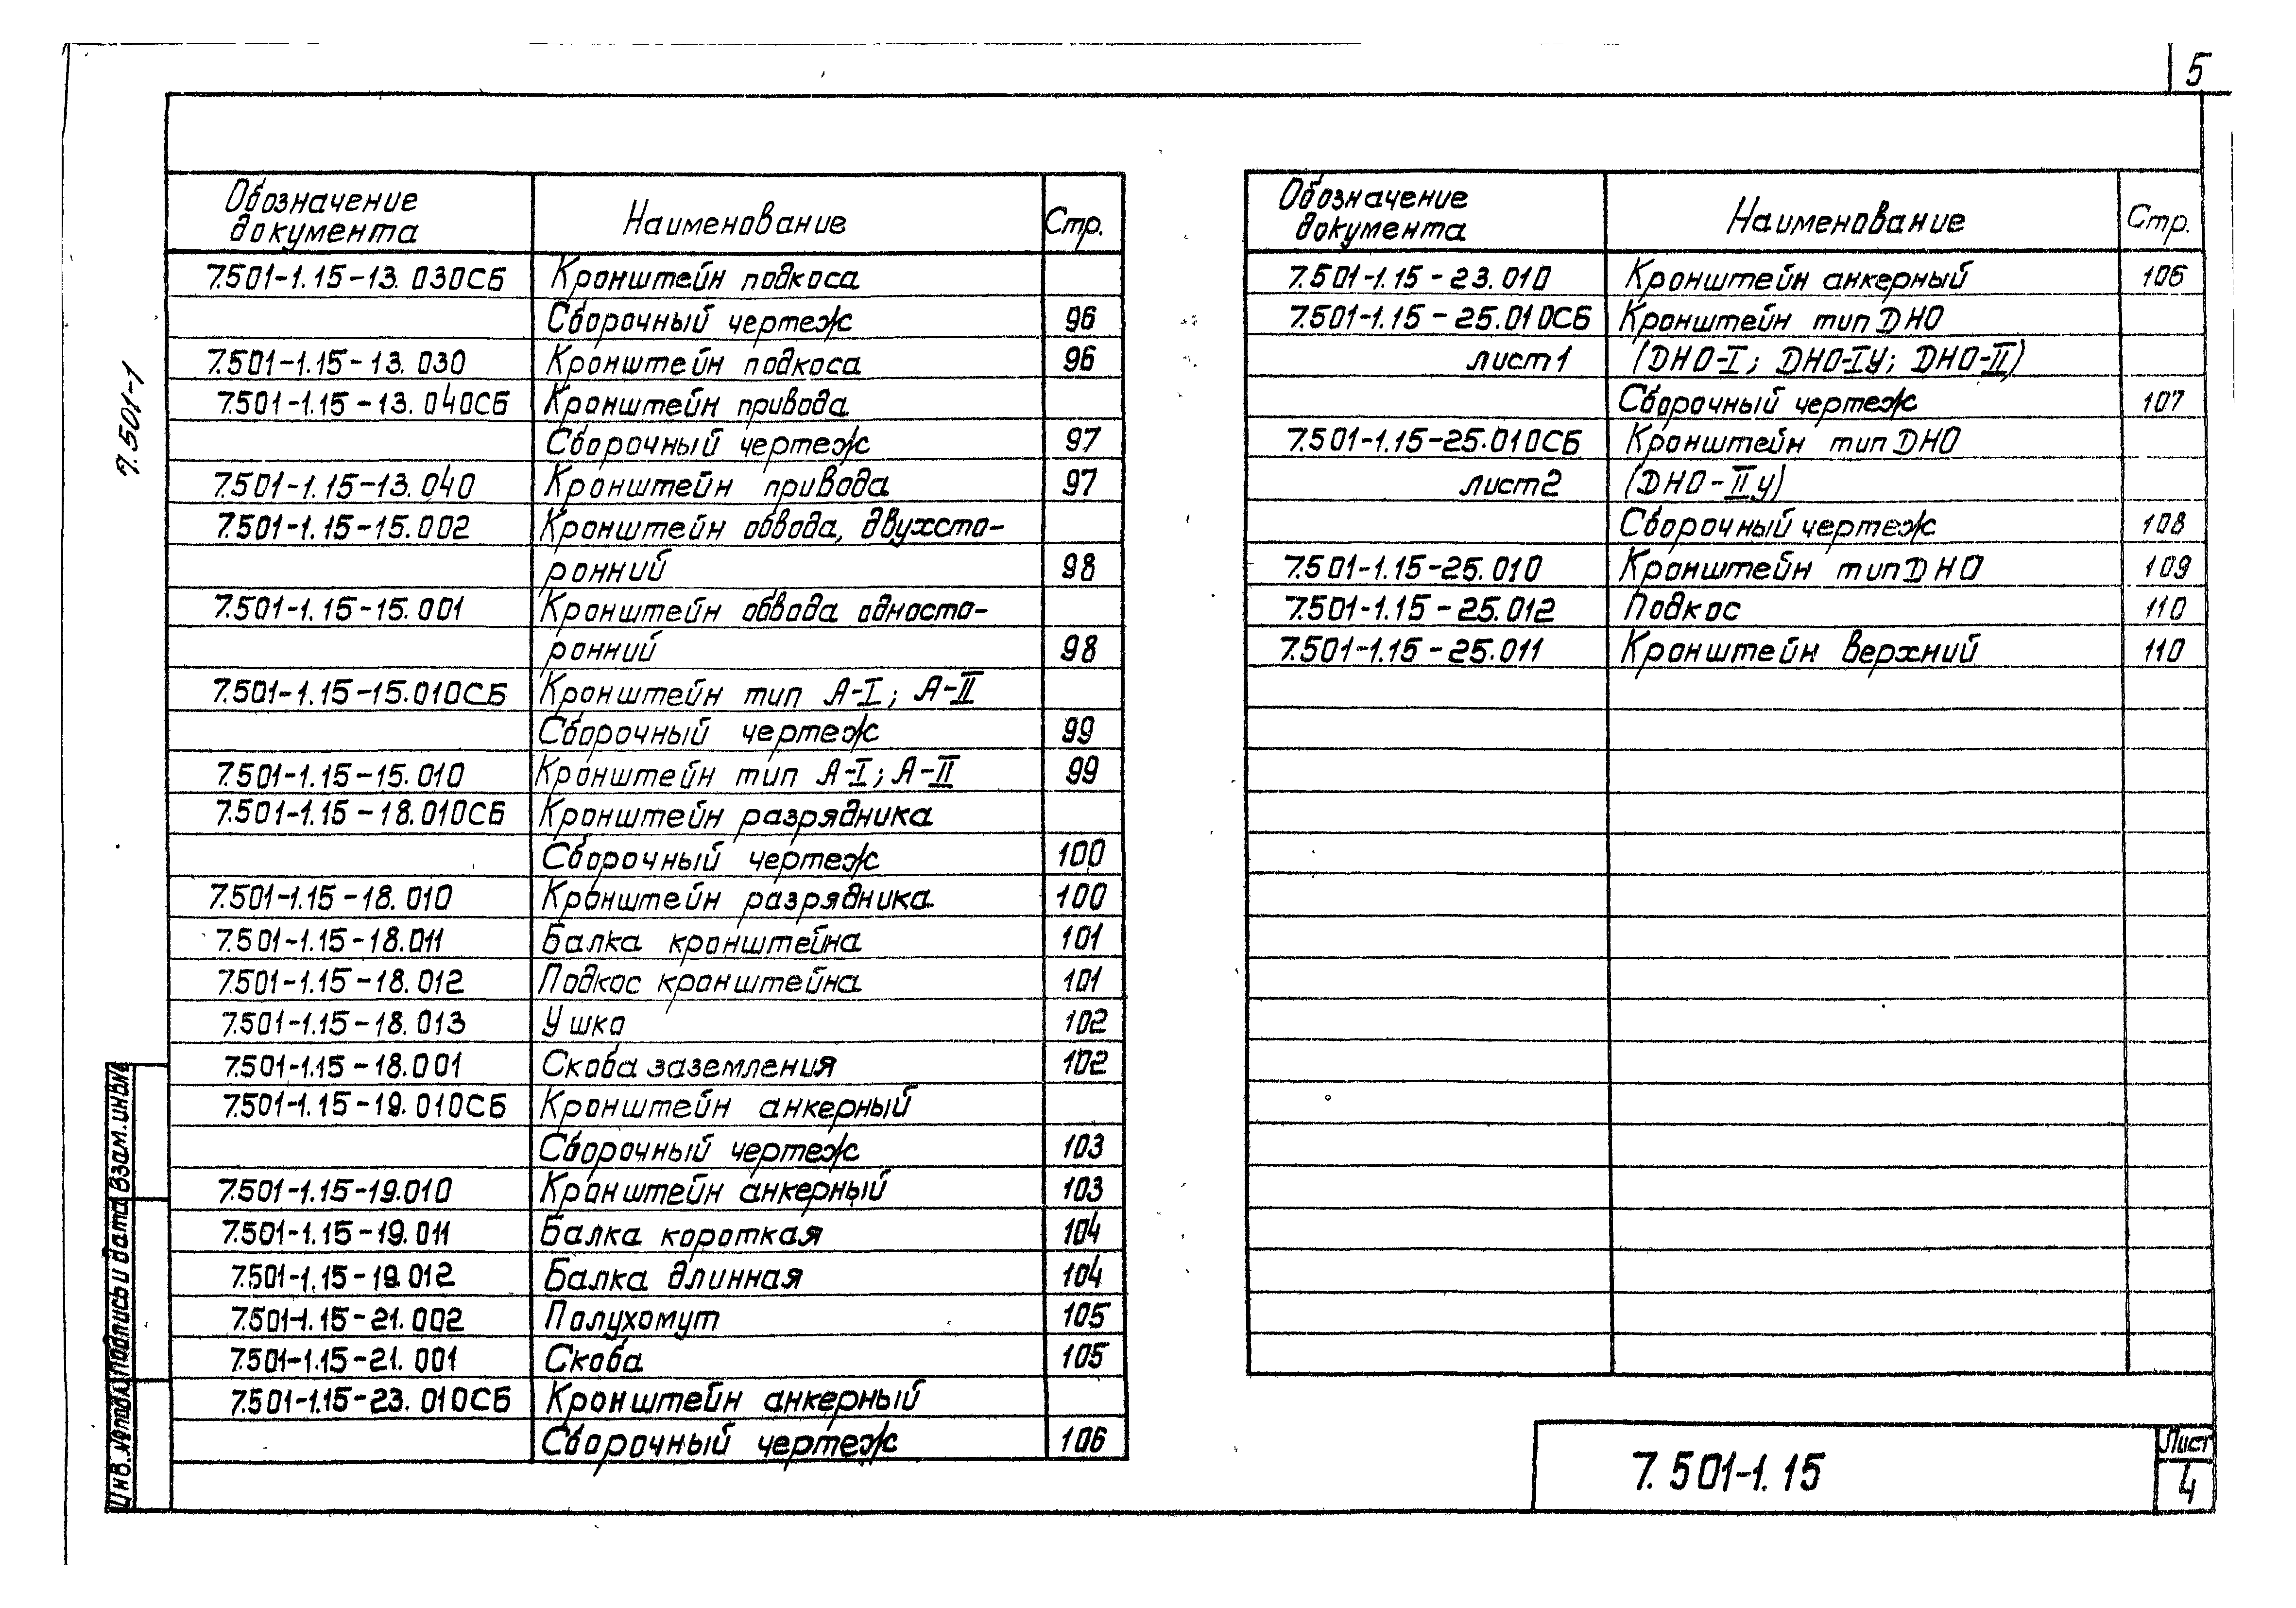 5
7.501-1
Обозначение документа Наименование Стр.
7.501-1.15-13.030СБ Кронштейн подкоса
Сборочный чертеж 96
7.501-1.15-13.030 Кронштейн подкоса 96
7.501-1.15-13.040СБ Кронштейн привода
Сборочный чертеж 97
7.501-1.15-13.040 Кронштейн привода 97
7.501-1.15-15.002 Кронштейн обвода, двухсто-
ронний 98
7.501-1.15-15.001 Кронштейн обвода односто-
ронний 98
7.501-1.15-15.010СБ Кронштейн тип А-I; А-II
Сборочный чертеж 99
7.501-1.15-15.010 Кронштейн тип А-I; А-II 99
7.501-1.15-18.010СБ Кронштейн разрядника
Сборочный чертеж 100
7.501-1.15-18.010 Кронштейн разрядника 100
7.501-1.15-18.011 Балка кронштейна 101
7.501-1.15-18.012 Подкос кронштейна 101
7.501-1.15-18.013 Ушко 102
7.501-1.15-18.001 Скоба заземления 102
7.501-1.15-19.010СБ Кронштейн анкерный
Сборочный чертеж 103
7.501-1.15-19.010 Кронштейн анкерный 103
7.501-1.15-19.011 Балка короткая 104
7.501-1.15-19.012 Балка длинная 104
7.501-1.15-21.002 Полухомут 105
7.501-1.15-21.001 Скоба 105
7.501-1.15-23.010СБ Кронштейн анкерный
Сборочный чертеж 106
Обозначение документа Наименование Стр.
7.501-1.15-23.010 Кронштейн анкерный 106
7.501-1.15-25.010СБ Кронштейн тип ДНО
лист 1 (ДНО-I; ДНО-IУ; ДНО-II)
Сборочный чертеж 107
7.501-1.15-25.010СБ Кронштейн тип ДНО
лист 2 (ДНО-IIу)
Сборочный чертеж 108
7.501-1.15-25.010 Кронштейн тип ДНО 109
7.501-1.15-25.012 Подкос 110
7.501-1.15-25.011 Кронштейн верхний 110
Инв.№подл. Подпись и дата Взам.инв№
7.501-1.15
Лист
4